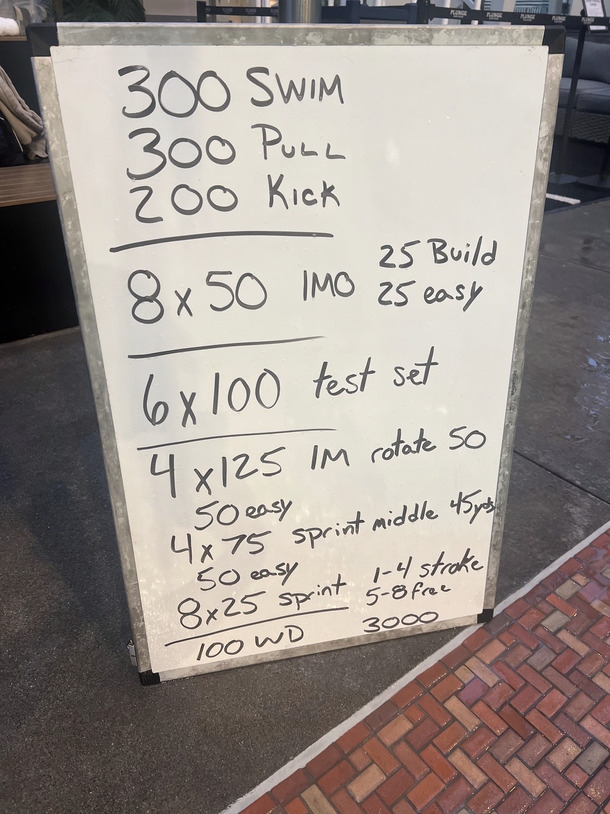 PLUNGE PLUNGE PLUNGE PLUNGE
300 SWIM
300 PULL
200 Kick
8x50 IMO 25 Build
25 easy
6x100 test set
4x125 IM rotate 50
50 easy
4x75 sprint middle 45yds
50 easy
8x25 sprint 1-4 stroke
5-8 free
100 WD 3000